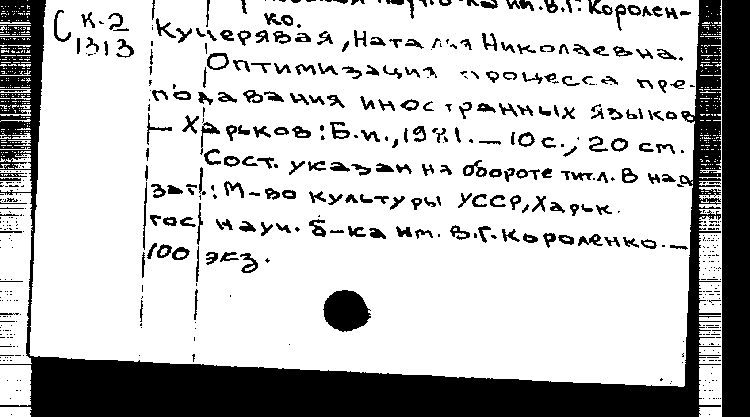 науч. б-ка им. В.Г. Королен-
С К-2 ко.
1313 Кучерявая, Наталья Николаевна.
Оптимизация процесса пре-
подавания иностранных языков
— Харьков: Б.и., 1981. — 10 с.; 20 см.
Сост. указан на обороте тит. л. В над-
заг.: М-во культуры УССР, Харьк.
гос. науч. б-ка им. В.Г. Короленко. —
100 экз.